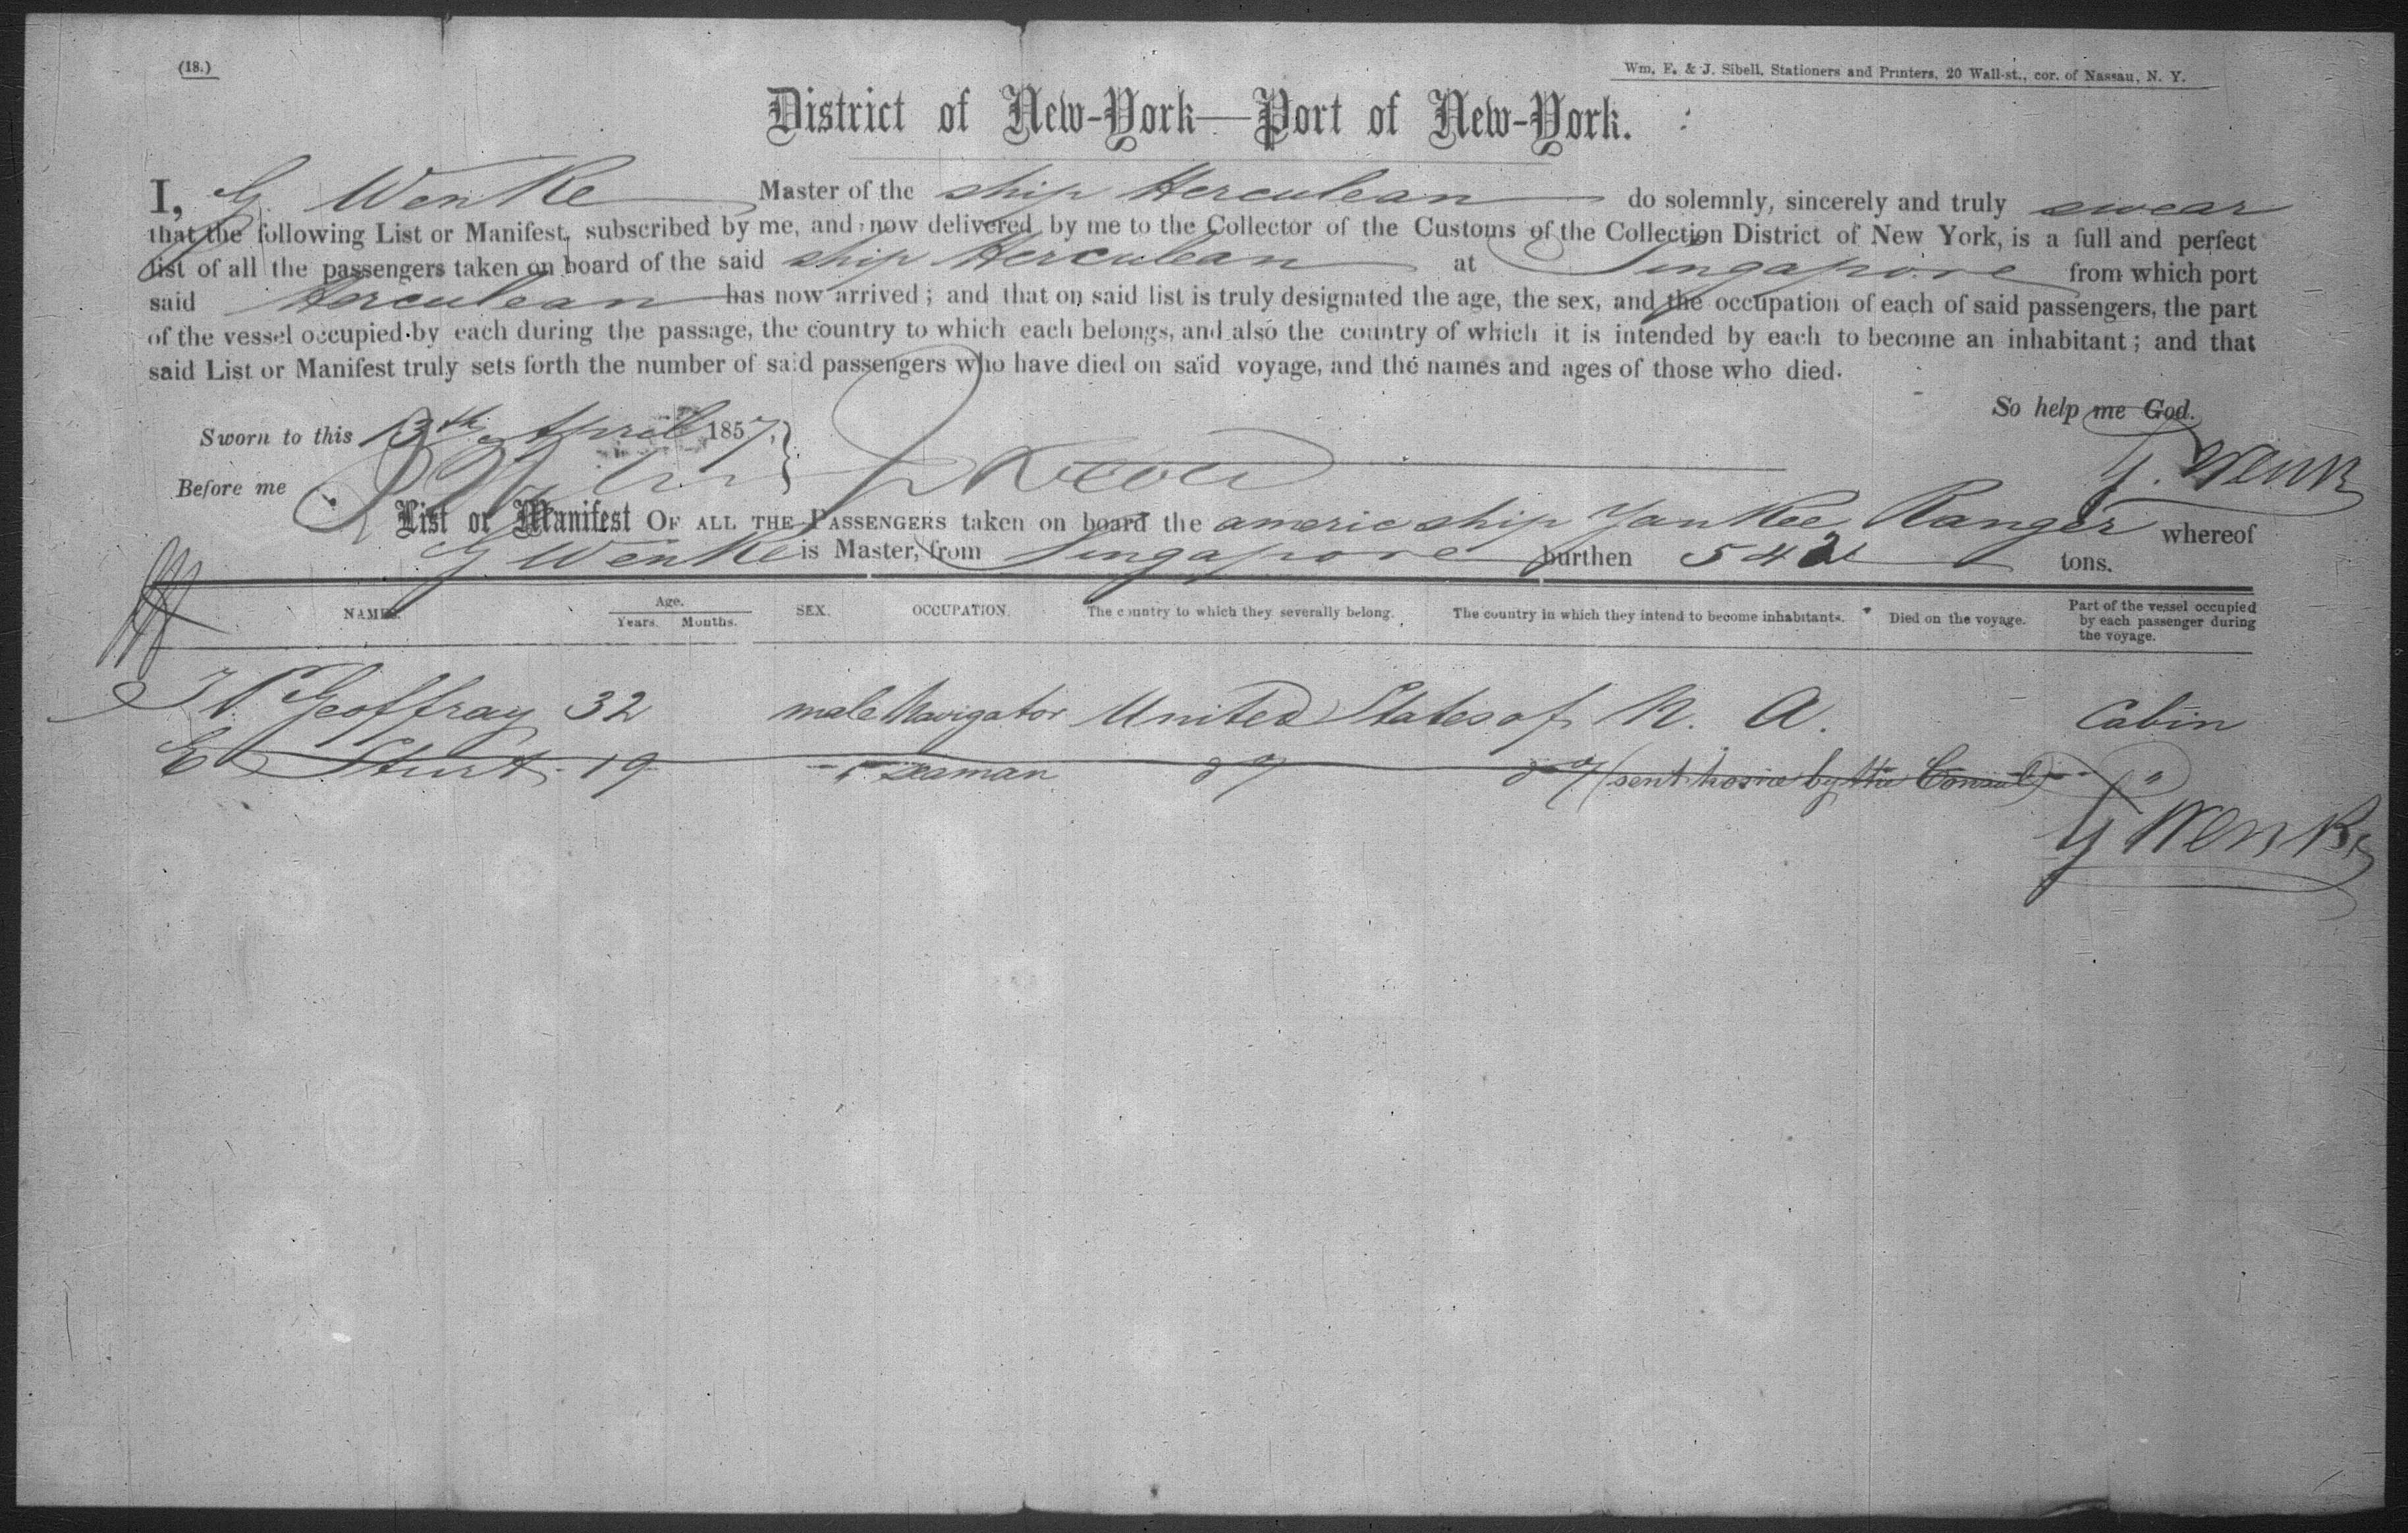 (18.)
Wm. F. & J. Sibell, Stationers and Printers, 20 Wall-st., cor. of Nassau, N. Y.
District of New-York—Port of New-York.
I, G. Wenke Master of the ship Herculean do solemnly, sincerely and truly swear
that the following List or Manifest, subscribed by me, and now delivered by me to the Collector of the Customs of the Collection District of New York, is a full and perfect
list of all the passengers taken on board of the said ship Herculean at Singapore from which port
said Herculean has now arrived; and that on said list is truly designated the age, the sex, and the occupation of each of said passengers, the part
of the vessel occupied by each during the passage, the country to which each belongs, and also the country of which it is intended by each to become an inhabitant; and that
said List or Manifest truly sets forth the number of said passengers who have died on said voyage, and the names and ages of those who died.
So help me God.
Sworn to this 13th April 1857,
G. Wenke
Before me
List or Manifest OF ALL THE PASSENGERS taken on board the americ ship Yankee Ranger whereof
G Wenke is Master, from Singapore burthen 542 tons.
NAMES. Age. Years. Months. SEX. OCCUPATION. The country to which they severally belong. The country in which they intend to become inhabitants. Died on the voyage. Part of the vessel occupied by each passenger during the voyage.
Geoffray 32 male Navigator United States of N. A. Cabin
E Sturt 19 " Seaman do do (sent home by the Consul) "
G Wenke